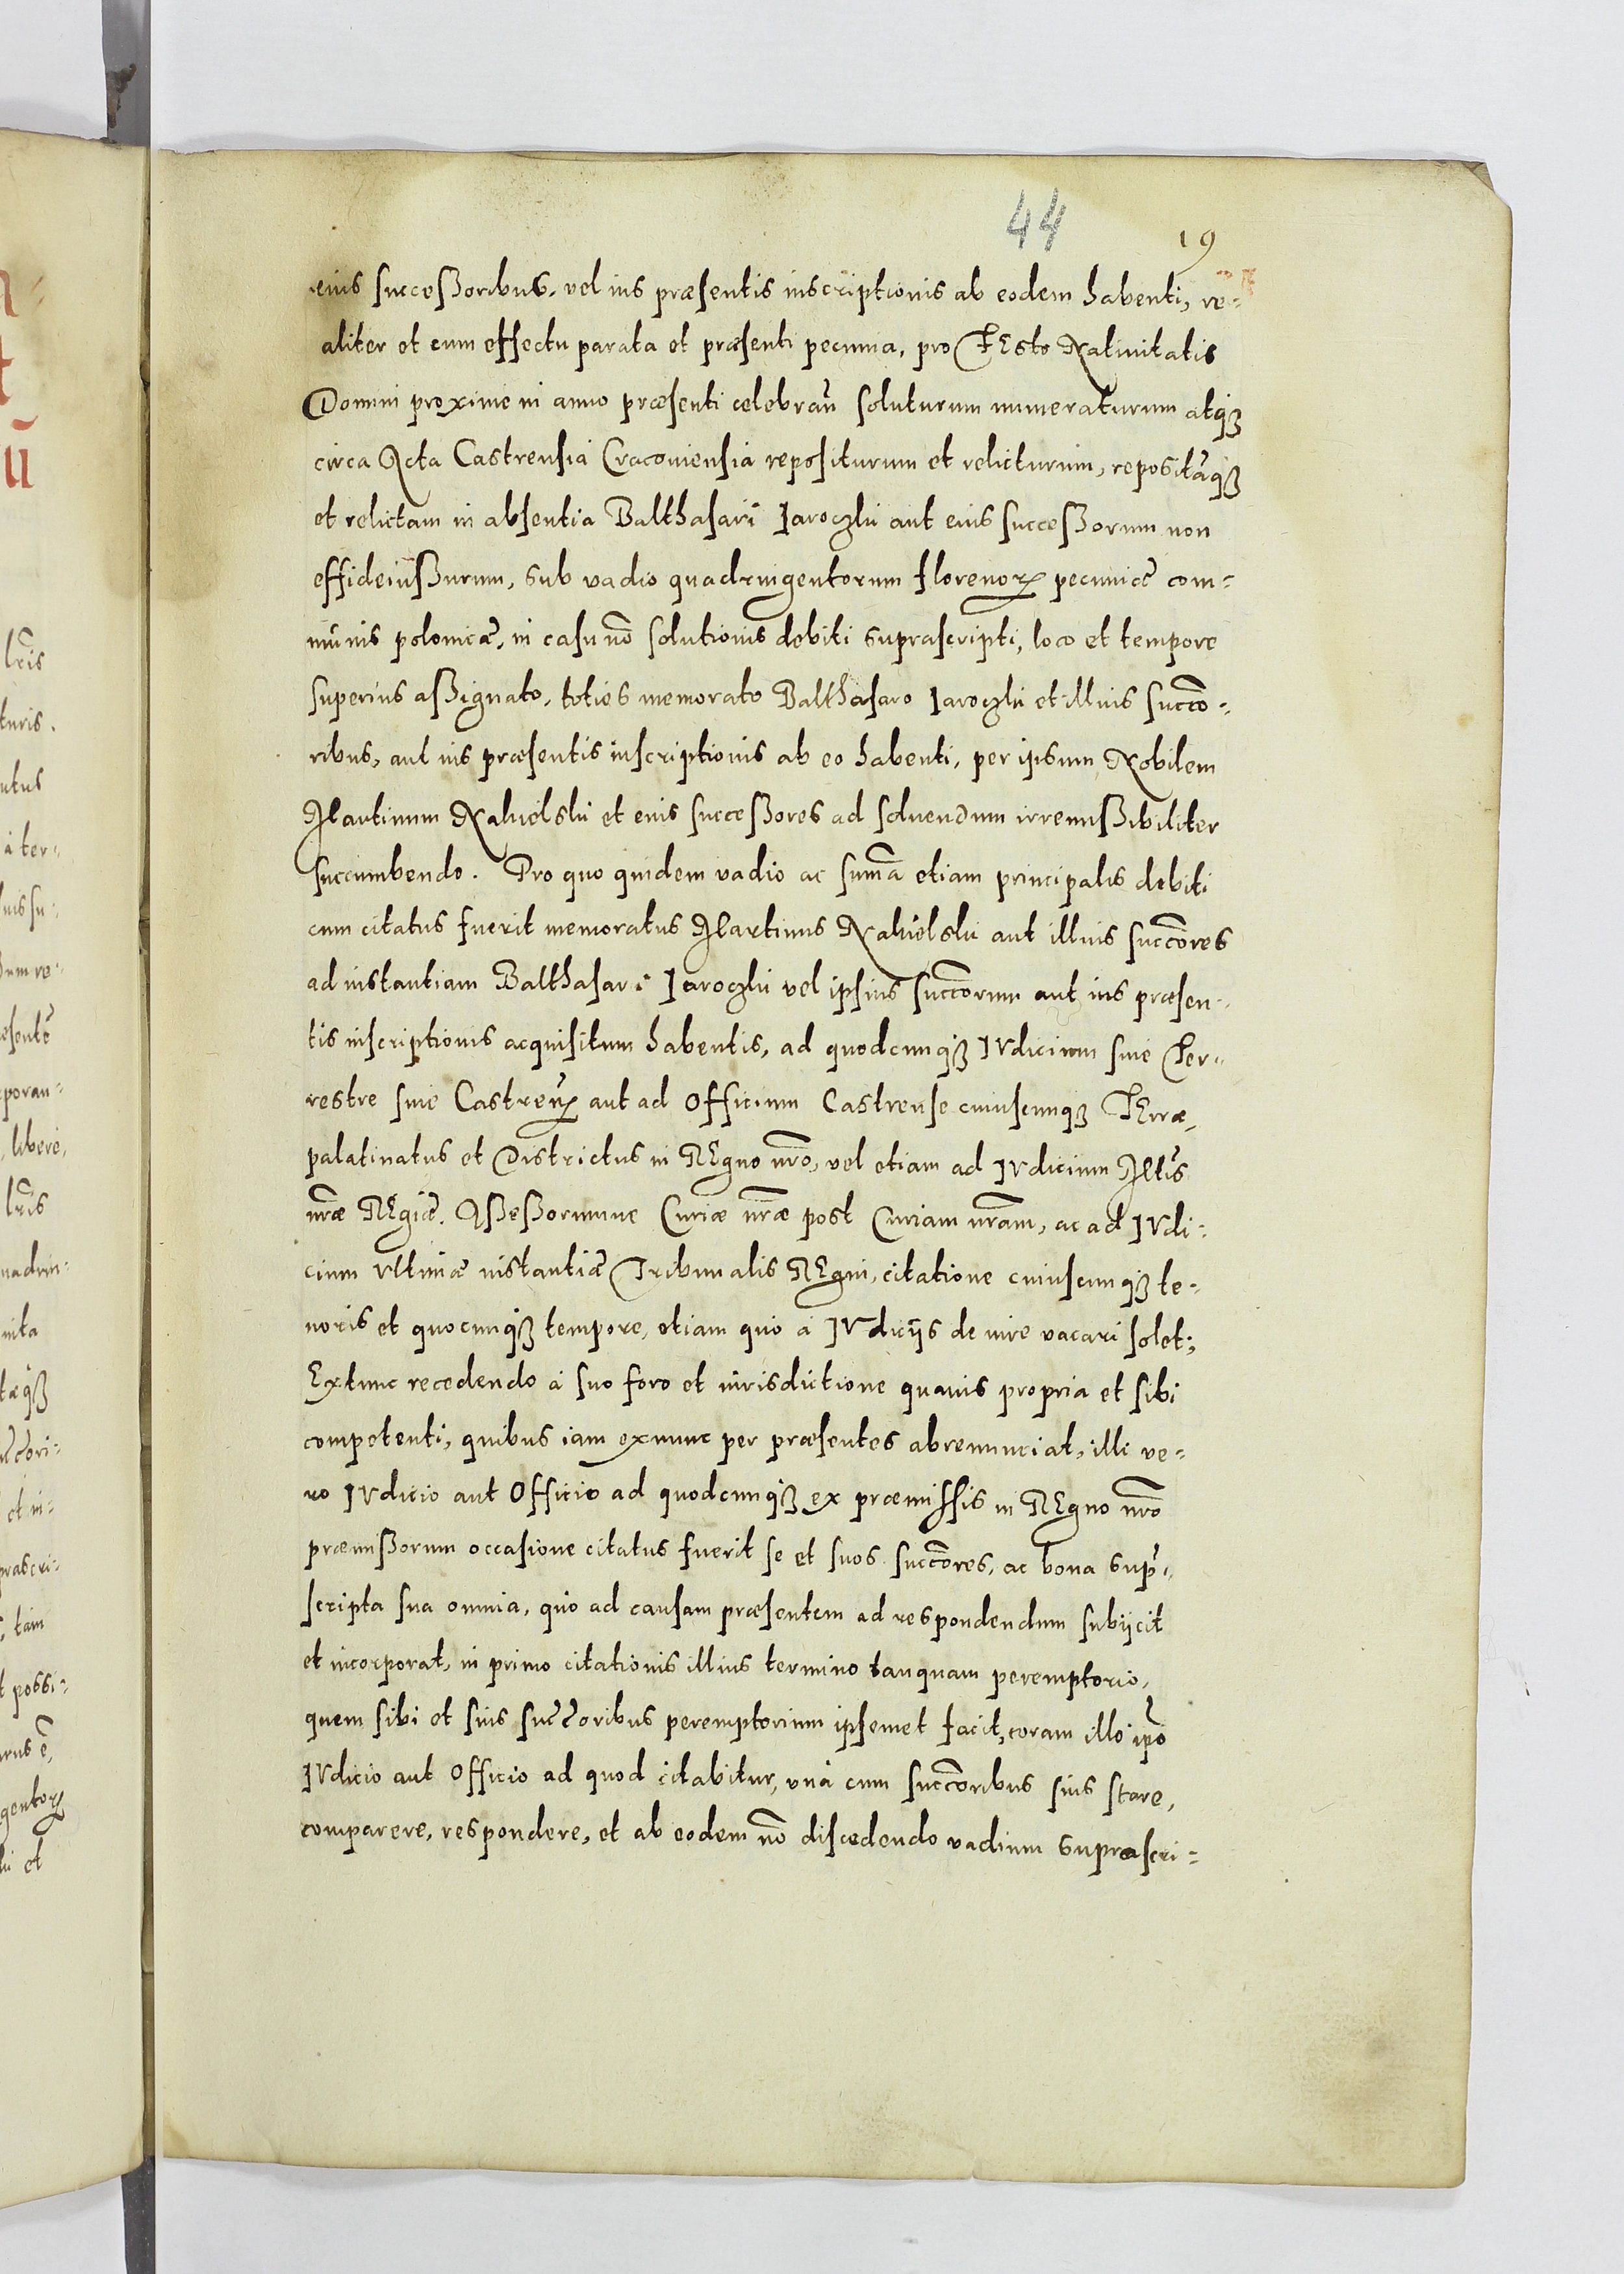 44 19
eius succeßoribus, vel ius præsentis inscriptionis ab eodem habenti, re-
aliter et cum effectu parata et præsenti pecunia, pro FEsto Natiuitatis
Domini proxime in anno præsenti celebrañ soluturum numeraturum atqꝫ
circa Acta Castrensia Cracouiensia repositurum et relicturum, repositãqꝫ
et relictam in absentia Balthasari Jaroczki aut eius succeßorum non
effideiußurum, sub vadio quadringentorum florenoꝝ pecuniæ com-
munis polonicæ, in casu nõ solutionis debiti suprascripti, loco et tempore
superius aßignato, toties memorato Balthasaro Jaroczki et illius succõ-
ribus, aut ius præsentis inscriptionis ab eo habenti, per ipsum Nobilem
Martinum Nakielski et eius succeßores ad soluendum irremißibiliter
succumbendo. Pro quo quidem vadio ac sum̃a etiam principalis debiti
cum citatus fuerit memoratus Martinus Nakielski aut illius succõres
ad instantiam Balthasari Jaroczki vel ipsius succõrum aut ius præsen-
tis inscriptionis acquisitum habentis, ad quodcunqꝫ IVdicium siue Ter-
restre siue Castreñ aut ad Officium Castrense cuiuscunqꝫ TErræ,
palatinatus et Districtus in REgno nr̃o, vel etiam ad IVdicium Mtt̃s
nr̃æ REgiæ. Aßeßorumue Curiæ nr̃æ post Curiam nr̃am, ac ad IVdi-
cium Vltimæ instantiæ Tribunalis REgni, citatione cuiuscunqꝫ te-
noris et quocunqꝫ tempore, etiam quo à IVdicijs de iure vacari solet;
Extunc recedendo à suo foro et iurisdictione quauis propria et sibi
competenti, quibus iam exnunc per præsentes abrenunciat, illi ve-
ro IVdicio aut Officio ad quodcunqꝫ ex præmissis in REgno nr̃o
præmißorum occasione citatus fuerit se et suos succõres, ac bona sup̃-
scripta sua omnia, quo ad causam præsentem ad respondendum subijcit
et incorporat, in primo citationis illius termino tanquam peremptorio,
quem sibi et suis succõribus peremptorium ipsemet facit, coram illo ip̃o
IVdicio aut Officio ad quod citabitur, vnà cum succõribus suis stare,
comparere, respondere, et ab eodem nõ discedendo vadium suprascri-